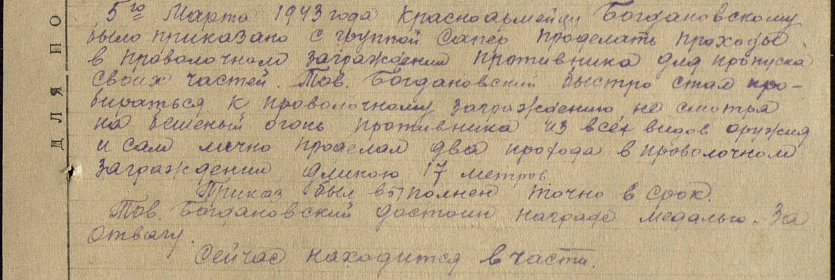 5го Марта 1943 года Красноармейцу Богдановскому
было приказано с группой сапёр проделать проходы
в проволочном заграждении противника для пропуска
своих частей. Тов. Богдановский быстро стал про-
бираться к проволочному заграждению не смотря
на бешеный огонь противника из всех видов оружия
и сам лично проделал два прохода в проволочном
заграждении длиною 17 метров.
Приказ был выполнен точно в срок.
Тов. Богдановский достоин награде медалью. За
Отвагу.
Сейчас находится в части.
ДЛЯ ПО